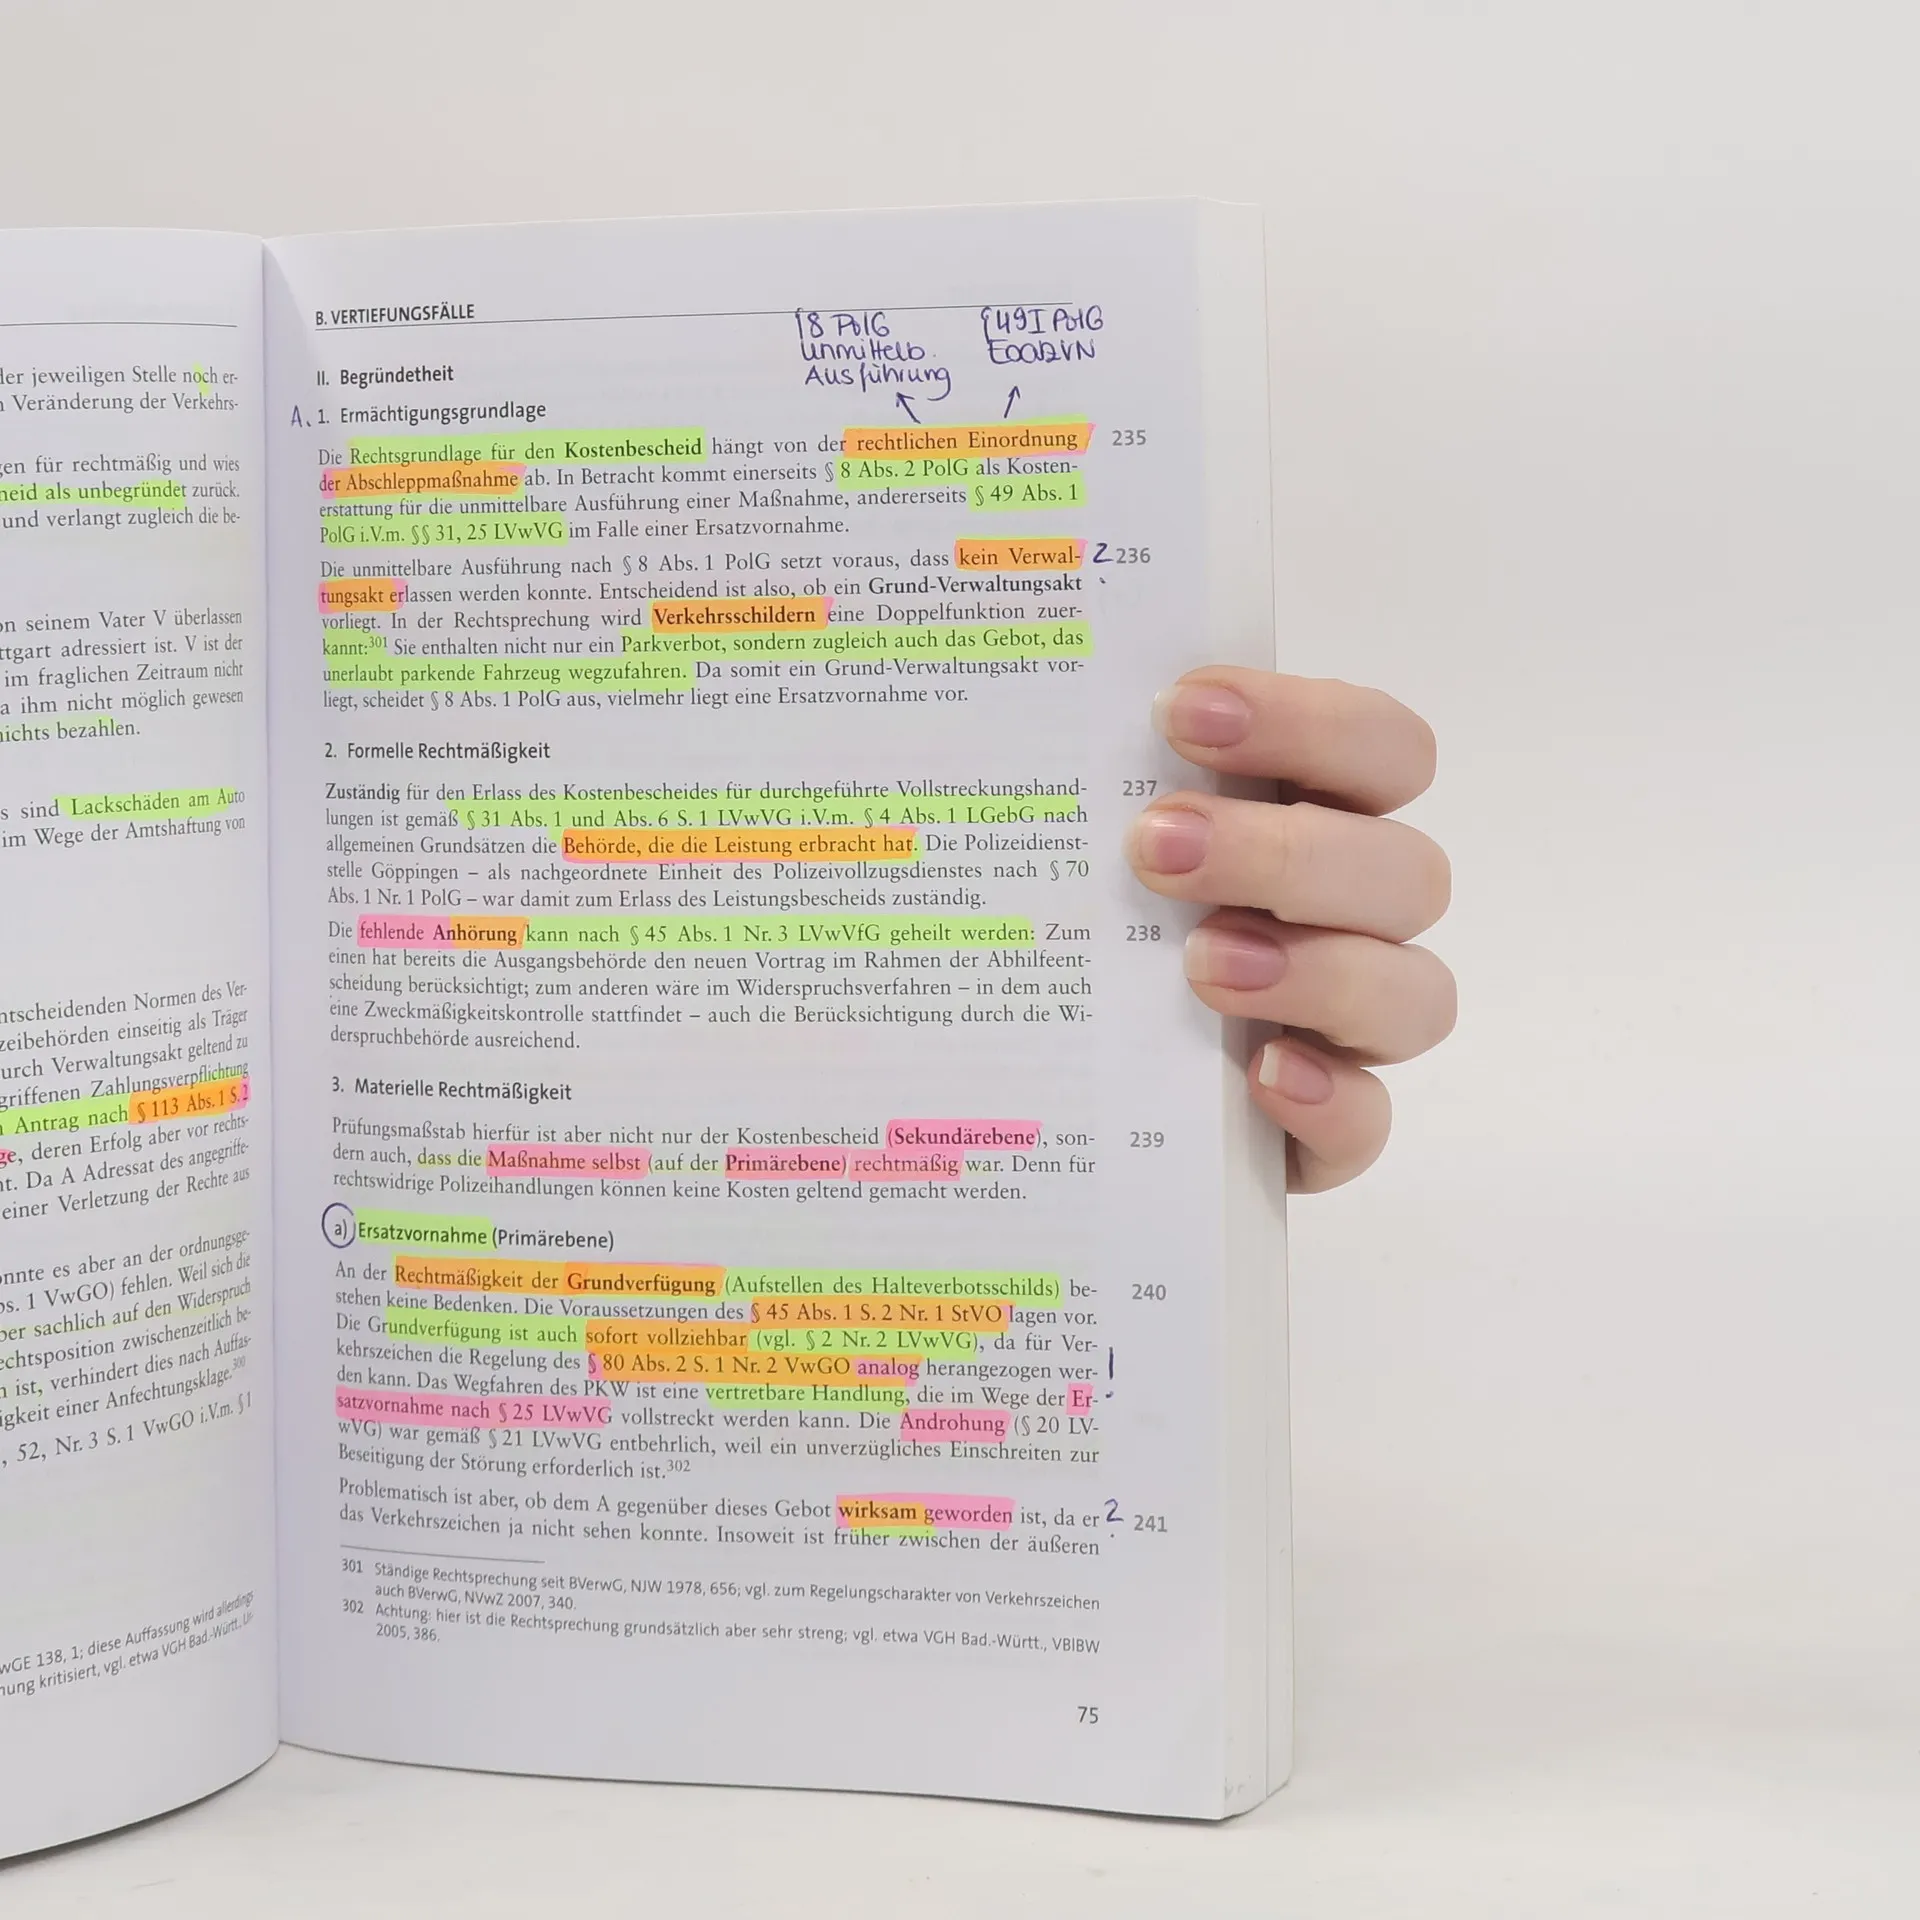 der jeweiligen Stelle noch er-
n Veränderung der Verkehrs-
gen für rechtmäßig und wies
heid als unbegründet zurück.
und verlangt zugleich die be-
on seinem Vater V überlassen
ttgart adressiert ist. V ist der
im fraglichen Zeitraum nicht
a ihm nicht möglich gewesen
nichts bezahlen.
s sind Lackschäden am Auto
im Wege der Amtshaftung von
ntscheidenden Normen des Ver-
zeibehörden einseitig als Träger
urch Verwaltungsakt geltend zu
griffenen Zahlungsverpflichtung
n Antrag nach § 113 Abs. 1 S. 2
ge, deren Erfolg aber vor rechts-
nt. Da A Adressat des angegriffe-
einer Verletzung der Rechte aus
onnte es aber an der ordnungsge-
bs. 1 VwGO) fehlen. Weil sich die
ber sachlich auf den Widerspruch
echtsposition zwischenzeitlich be-
n ist, verhindert dies nach Auffas-
igkeit einer Anfechtungsklage.300
, 52, Nr. 3 S. 1 VwGO i.V.m. § 1
wGE 138, 1; diese Auffassung wird allerdings
nung kritisiert, vgl. etwa VGH Bad.-Württ., U-
B. VERTIEFUNGSFÄLLE
§8 PolG §49I PolG
Unmittelb.
Ausführung
II. Begründetheit
A. 1. Ermächtigungsgrundlage
Die Rechtsgrundlage für den Kostenbescheid hängt von der rechtlichen Einordnung 235
der Abschleppmaßnahme ab. In Betracht kommt einerseits § 8 Abs. 2 PolG als Kosten-
erstattung für die unmittelbare Ausführung einer Maßnahme, andererseits § 49 Abs. 1
PolG i.V.m. §§ 31, 25 LVwVG im Falle einer Ersatzvornahme.
Die unmittelbare Ausführung nach § 8 Abs. 1 PolG setzt voraus, dass kein Verwal- 236
tungsakt erlassen werden konnte. Entscheidend ist also, ob ein Grund-Verwaltungsakt
vorliegt. In der Rechtsprechung wird Verkehrsschildern eine Doppelfunktion zuer-
kannt:301 Sie enthalten nicht nur ein Parkverbot, sondern zugleich auch das Gebot, das
unerlaubt parkende Fahrzeug wegzufahren. Da somit ein Grund-Verwaltungsakt vor-
liegt, scheidet § 8 Abs. 1 PolG aus, vielmehr liegt eine Ersatzvornahme vor.
2. Formelle Rechtmäßigkeit
Zuständig für den Erlass des Kostenbescheides für durchgeführte Vollstreckungshand- 237
lungen ist gemäß § 31 Abs. 1 und Abs. 6 S. 1 LVwVG i.V.m. § 4 Abs. 1 LGebG nach
allgemeinen Grundsätzen die Behörde, die die Leistung erbracht hat. Die Polizeidienst-
stelle Göppingen – als nachgeordnete Einheit des Polizeivollzugsdienstes nach § 70
Abs. 1 Nr. 1 PolG – war damit zum Erlass des Leistungsbescheids zuständig.
Die fehlende Anhörung kann nach § 45 Abs. 1 Nr. 3 LVwVfG geheilt werden: Zum 238
einen hat bereits die Ausgangsbehörde den neuen Vortrag im Rahmen der Abhilfeent-
scheidung berücksichtigt; zum anderen wäre im Widerspruchsverfahren – in dem auch
eine Zweckmäßigkeitskontrolle stattfindet – auch die Berücksichtigung durch die Wi-
derspruchbehörde ausreichend.
3. Materielle Rechtmäßigkeit
Prüfungsmaßstab hierfür ist aber nicht nur der Kostenbescheid (Sekundärebene), son- 239
dern auch, dass die Maßnahme selbst (auf der Primärebene) rechtmäßig war. Denn für
rechtswidrige Polizeihandlungen können keine Kosten geltend gemacht werden.
a) Ersatzvornahme (Primärebene)
An der Rechtmäßigkeit der Grundverfügung (Aufstellen des Halteverbotsschilds) be- 240
stehen keine Bedenken. Die Voraussetzungen des § 45 Abs. 1 S. 2 Nr. 1 StVO lagen vor.
Die Grundverfügung ist auch sofort vollziehbar (vgl. § 2 Nr. 2 LVwVG), da für Ver-
kehrszeichen die Regelung des § 80 Abs. 2 S. 1 Nr. 2 VwGO analog herangezogen wer-
den kann. Das Wegfahren des PKW ist eine vertretbare Handlung, die im Wege der Er-
satzvornahme nach § 25 LVwVG vollstreckt werden kann. Die Androhung (§ 20 LV-
wVG) war gemäß § 21 LVwVG entbehrlich, weil ein unverzügliches Einschreiten zur
Beseitigung der Störung erforderlich ist.302
Problematisch ist aber, ob dem A gegenüber dieses Gebot wirksam geworden ist, da er 241
das Verkehrszeichen ja nicht sehen konnte. Insoweit ist früher zwischen der äußeren
301 Ständige Rechtsprechung seit BVerwG, NJW 1978, 656; vgl. zum Regelungscharakter von Verkehrszeichen
auch BVerwG, NVwZ 2007, 340.
302 Achtung: hier ist die Rechtsprechung grundsätzlich aber sehr streng; vgl. etwa VGH Bad.-Württ., VBlBW
2005, 386.
75